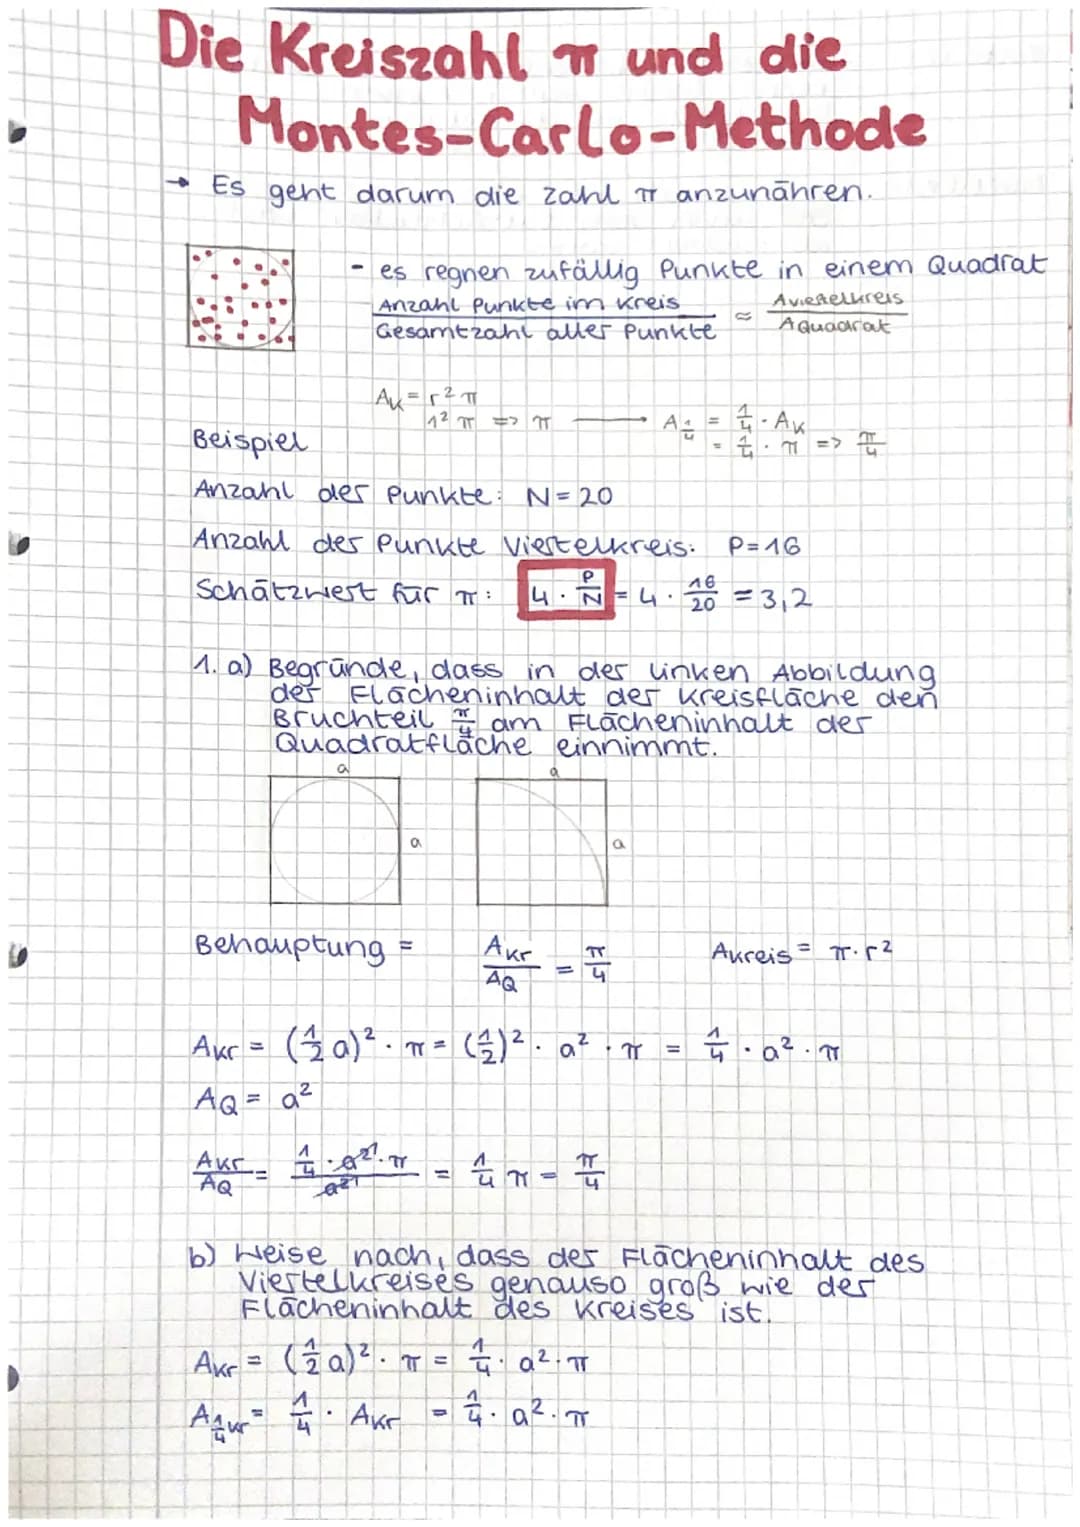 Die Kreiszahl π und die
Montes-Carlo-Methode
→ Es geht darum die Zahl π anzunähren.
- es regnen zufällig Punkte in einem Quadrat
Anzahl Punkte im Kreis / Gesamtzahl aller Punkte ≈ AViertelkreis / AQuadrat
A_K = r² π
1² π => π → A_1/4 = 1/4 · A_K
= 1/4 · π => π/4
Beispiel
Anzahl der Punkte: N = 20
Anzahl der Punkte Viertelkreis: P = 16
Schätzwert für π: 4 · P/N = 4 · 16/20 = 3,2
1. a) Begründe, dass in der linken Abbildung
der Flächeninhalt der Kreisfläche den
Bruchteil π/4 am Flächeninhalt der
Quadratfläche einnimmt.
a a
a a
Behauptung = A_Kr / A_Q = π/4 AKreis = π · r²
A_Kr = (1/2 a)² · π = (1/2)² · a² · π = 1/4 · a² · π
A_Q = a²
A_Kr / A_Q = 1/4 · a²¹ · π / a²¹ = 1/4 π = π/4
b) Weise nach, dass der Flächeninhalt des
Viertelkreises genauso groß wie der
Flächeninhalt des Kreises ist.
A_Kr = (1/2 a)² · π = 1/4 · a² · π
A_1/4 Kr = 1/4 · A_Kr = 1/4 · a² · π